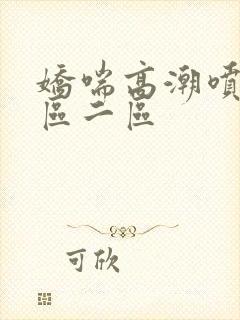 嬌喘高潮噴
區二區
可欣